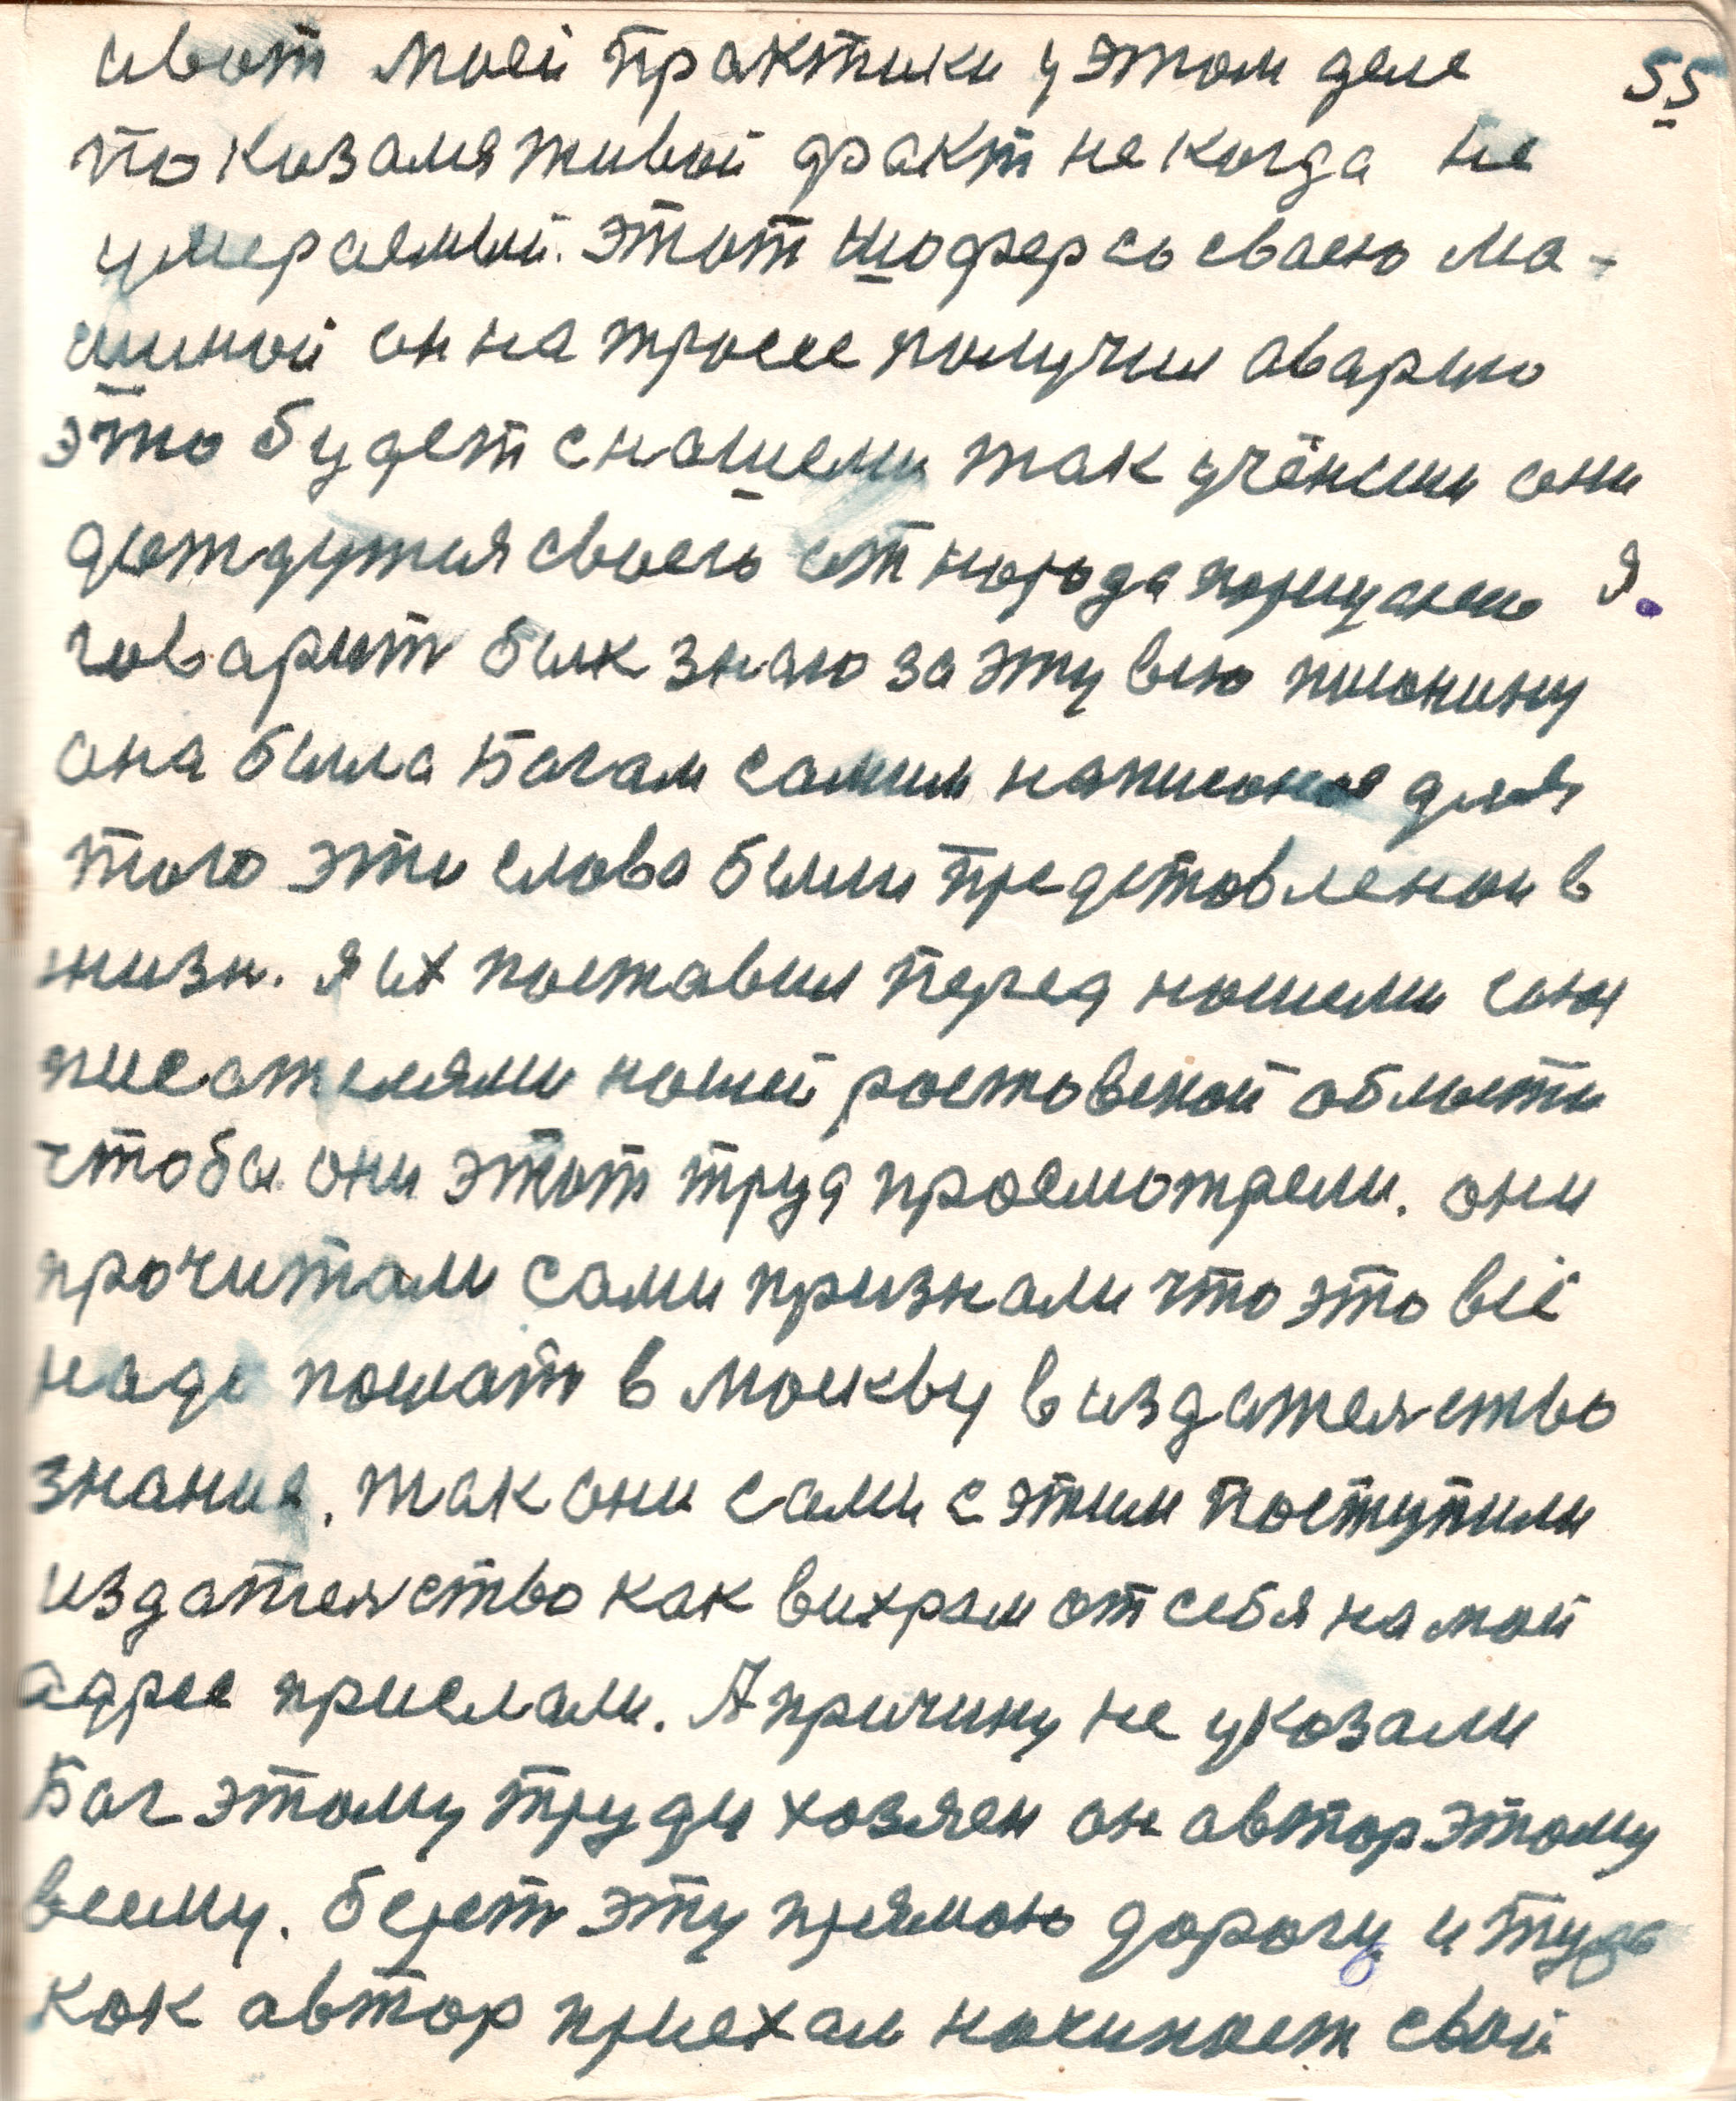 ивот моей практики у этом деле 55
показался живой факт некогда не
умераемый. этот шофер со своею ма-
шиной он на трассе получил аварию
это будет снашеми так учёными они
дождутся своего от народа порицанию я.
говарит бык знаю за эту всю писонину
она была Богам самим написоное для
того эти слова были предствовленои в
жизн. я их поставил перед нашими
писателями нашей ростовской области
чтобы они этот труд просмотрели. они
прочитали сами признали что это всё
надо послать в москву в издателяство
знания. так они сами с этим поступили
издателяство как вихрам от себя на мой
адрес прислали. А причину не указали
Бог этому труду хозяен он автор этому
всему. берет эту прямою дорогу и туда
как автор приехал начинает свой